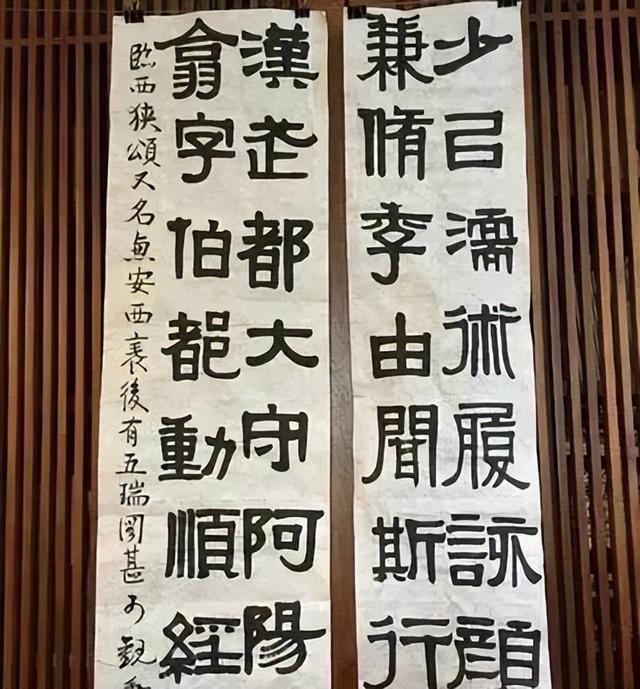 少㠯濡術履詠顏
兼脩季由聞斯行
漢武都大守阿陽
翕字伯都動順經
臨西狹頌又名惠安西表後有五瑞圖甚可觀